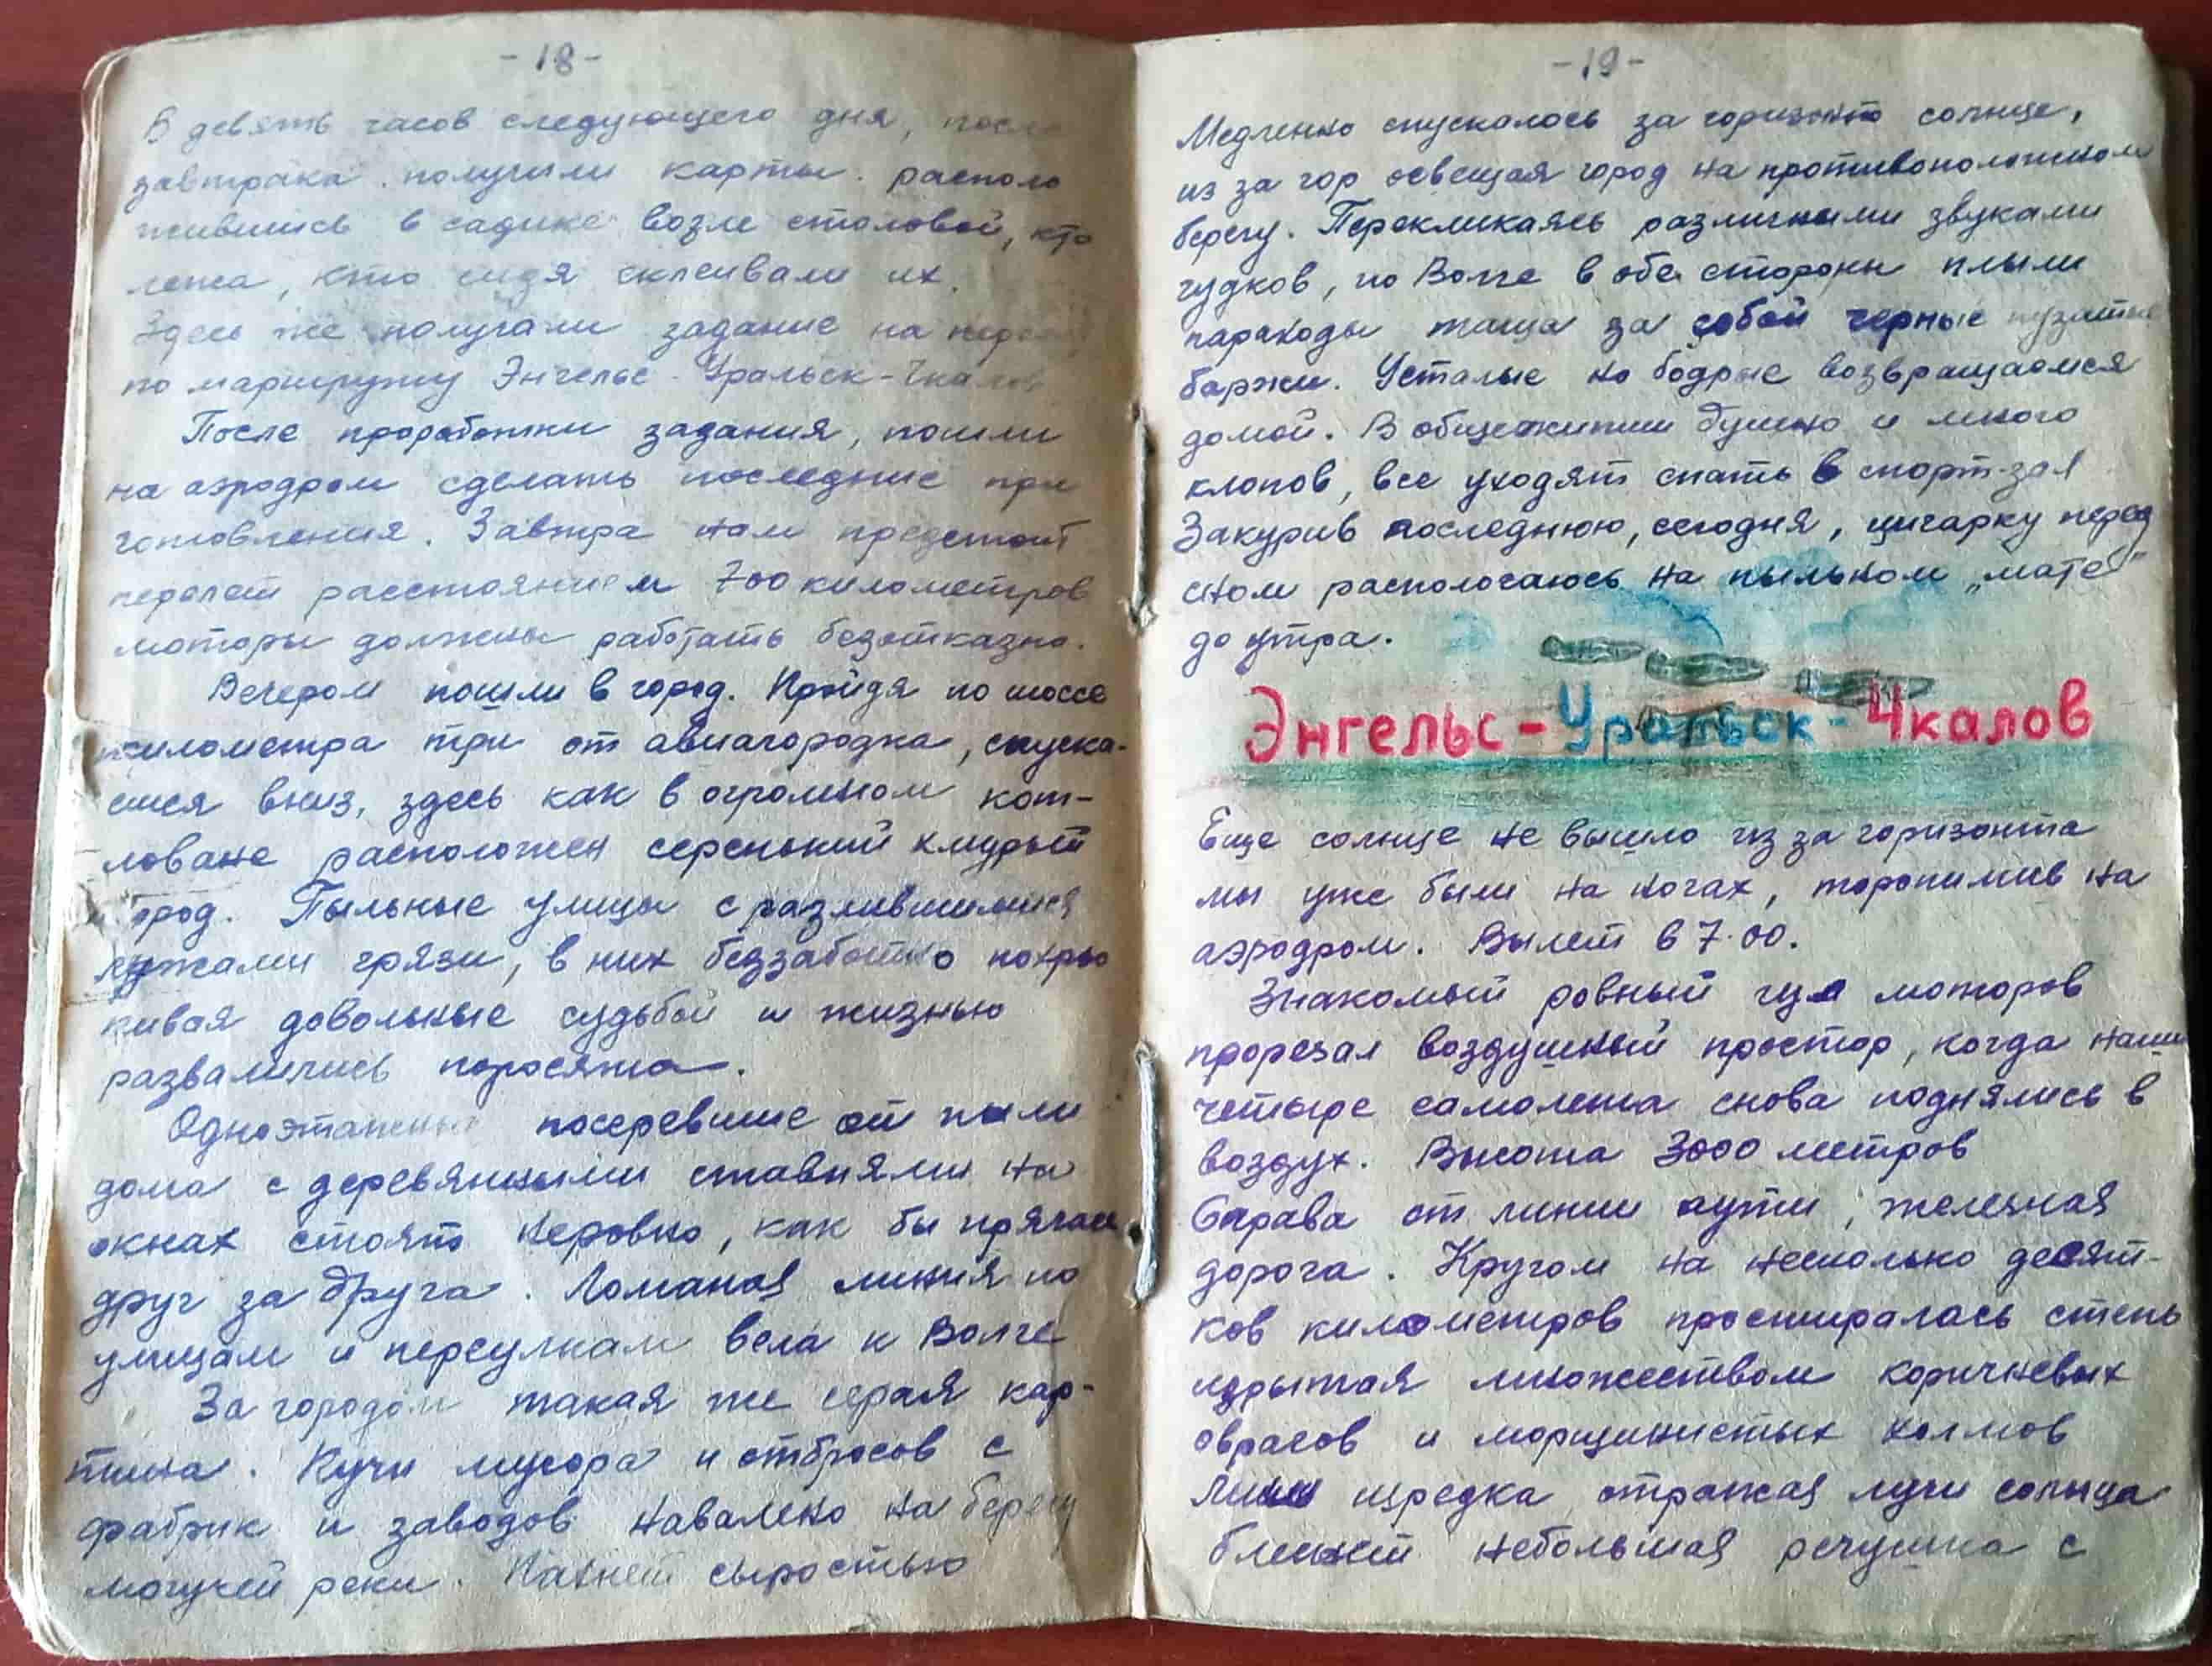 - 18 -
В девять часов следующего дня, после
завтрака получили карты. располо
жившись в садике возле столовой, кто
лежа, кто сидя склеивали их.
Здесь же получали задание на
по маршруту Энгельс - Уральск - Чкалов
После проработки задания, пошли
на аэродром сделать последние при
готовления. Завтра нам предстоит
перелет расстоянием 700 километров
моторы должны работать безотказно.
Вечером пошли в город. Пройдя по шоссе
километра три от авиагородка, спуска-
емся вниз, здесь как в огромном кот-
ловане расположен серенький хмурый
город. Пыльные улицы с разлившимися
лужами грязи, в них беззаботно похрю
кивая довольные судьбой и жизнью
развалились поросята.
Одноэтажные посеревшие от пыли
дома с деревянными ставнями на
окнах стоят неровно, как бы прячась
друг за друга. Ломаная линия по
улицам и переулкам вела к Волге
За городом такая же серая кар-
тина. Кучи мусора и отбросов с
фабрик и заводов навалено на берегу
могучей реки. Пахнет сыростью
- 19 -
Медленно спускалось за горизонт солнце,
из за гор освещая город на противоположном
берегу. Перекликаясь различными звуками
гудков, по Волге в обе стороны плыли
пароходы таща за собой черные пузатые
баржи. Усталые но бодрые возвращаемся
домой. В общежитии душно и много
клопов, все уходят спать в спорт-зал
Закурив последнюю, сегодня, цигарку перед
сном распологаюсь на пыльном „мате"
до утра.
Энгельс - Уральск - Чкалов
Еще солнце не вышло из за горизонта
мы уже были на ногах, торопимся на
аэродром. Вылет в 7.00.
Знакомый ровный гул моторов
прорезал воздушный простор, когда наши
четыре самолета снова поднялись в
воздух. Высота 3000 метров
Справа от линии пути, железная
дорога. Кругом на несколько десят-
ков километров простиралась степь
изрытая множеством коричневых
оврагов и морщинистых холмов
Лишь изредка отражая лучи солнца
блеснет небольшая речушка с